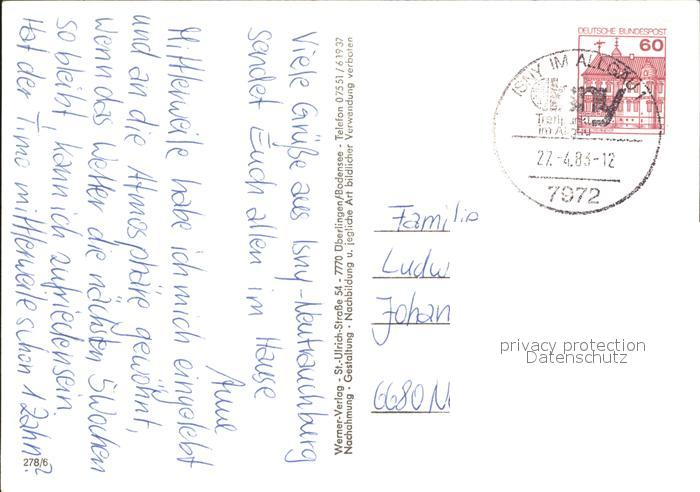 Viele Grüße aus Isny-Neutrauchburg
sendet Euch allen im Hause
Anne
Mittlerweile habe ich mich eingelebt
und an die Atmosphäre gewöhnt,
wenn das Wetter die nächsten 5 Wochen
so bleibt, kann ich zufrieden sein.
Hat der Timo mittlerweile schon 1 Zahn?
278/6
Werner-Verlag · St.-Ulrich-Straße 54 - 7770 Überlingen/Bodensee - Telefon 07551/61937
Nachahmung · Gestaltung · Nachbildung u. jegliche Art bildlicher Verwendung verboten
DEUTSCHE BUNDESPOST
60
ISNY IM ALLGÄU 1
isny
Treffpunkt
im Allgäu
27.-4.83-12
7972
Familie
Ludw
Johan
6680 N
privacy protection
Datenschutz